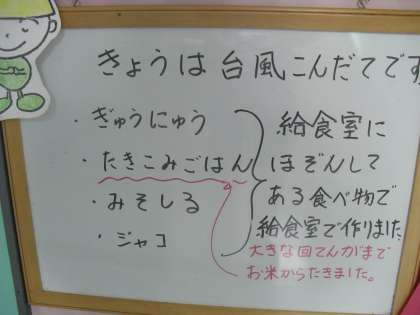 きょうは台風こんだてです
・ぎゅうにゅう
・たきこみごはん
・みそしる
・ジャコ
給食室に
ほぞんして
ある食べ物で
給食室で作りました
大きな回てんがまで
お米からたきました。